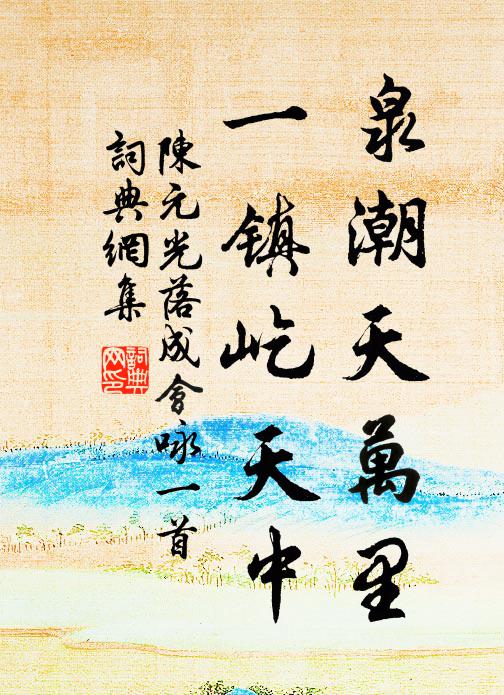 泉潮天萬里
一镇屹天中
陳元光落成會咏一首
詞典網集
詞典网印